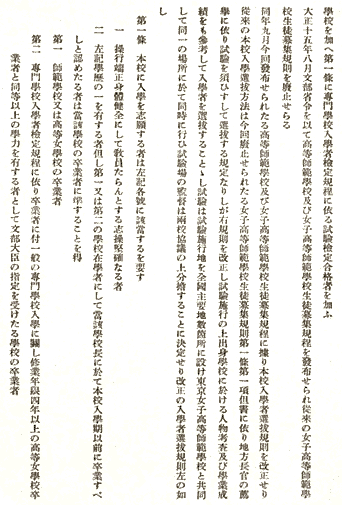 學校を加へ第一條に專門學校入學者檢定規程に依る試驗檢定合格者を加ふ
大正十五年八月文部省令を以て高等師範學校及び女子高等師範學校生徒募集規程を發布せられ從來の女子高等師範學
校生徒募集規則を廢止せらる
同年九月今回發布せられたる高等師範學校及び女子高等師範學校生徒募集規程に據り本校入學者選拔規則を改正せり
從來の本校入學選拔方法は今回廢止せられたる女子高等師範學校生徒募集規則第一條第一項但書に依り地方長官の薦
擧に依り試驗を須ひずして選拔する規定なりしが右規則を改正し試驗施行の上出身學校に於ける人物考査及び學業成
績をも參考して入學者を選拔することゝし試驗は試驗施行地を全國主要地數箇所に設け東京女子高等師範學校と共同
して同一の場所に於て同時に行ひ試驗場の監督は兩校協議の上分擔することに決定せり改正の入學者選拔規則左の如
し
第一條 本校に入學を志願する者は左記各號に該當するを要す
一 操行端正身體健全にして敎員たらんとする志操堅確なる者
二 左記學歷の一を有する者但し第一又は第二の學校在學者にして當該學校長に於て本校入學期以前に卒業すべ
しと認めたる者は當該學校の卒業者に準ずることを得
第一 師範學校又は高等女學校の卒業者
第二 專門學校入學者檢定規程に依り卒業者に付一般の專門學校入學に關し修業年限四年以上の高等女學校卒
業者と同等以上の學力を有する者として文部大臣の指定を受けたる學校の卒業者